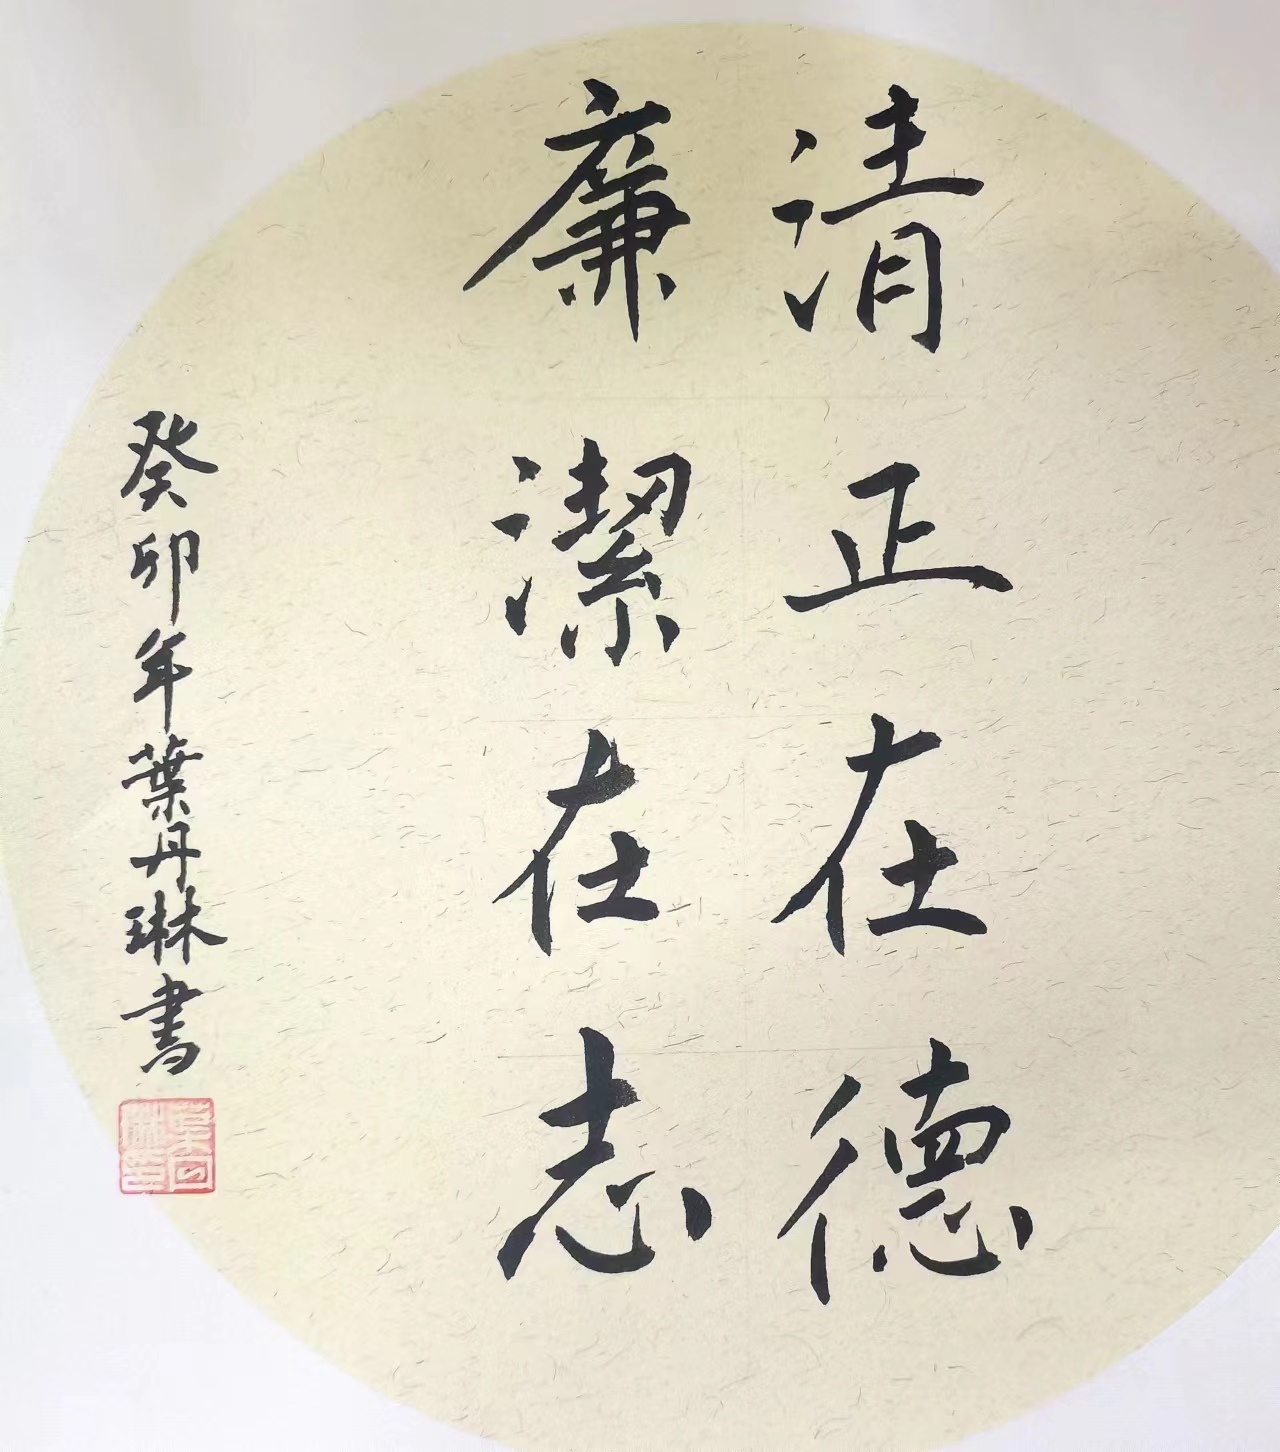 清正在德
廉潔在志
癸卯年葉丹琳書